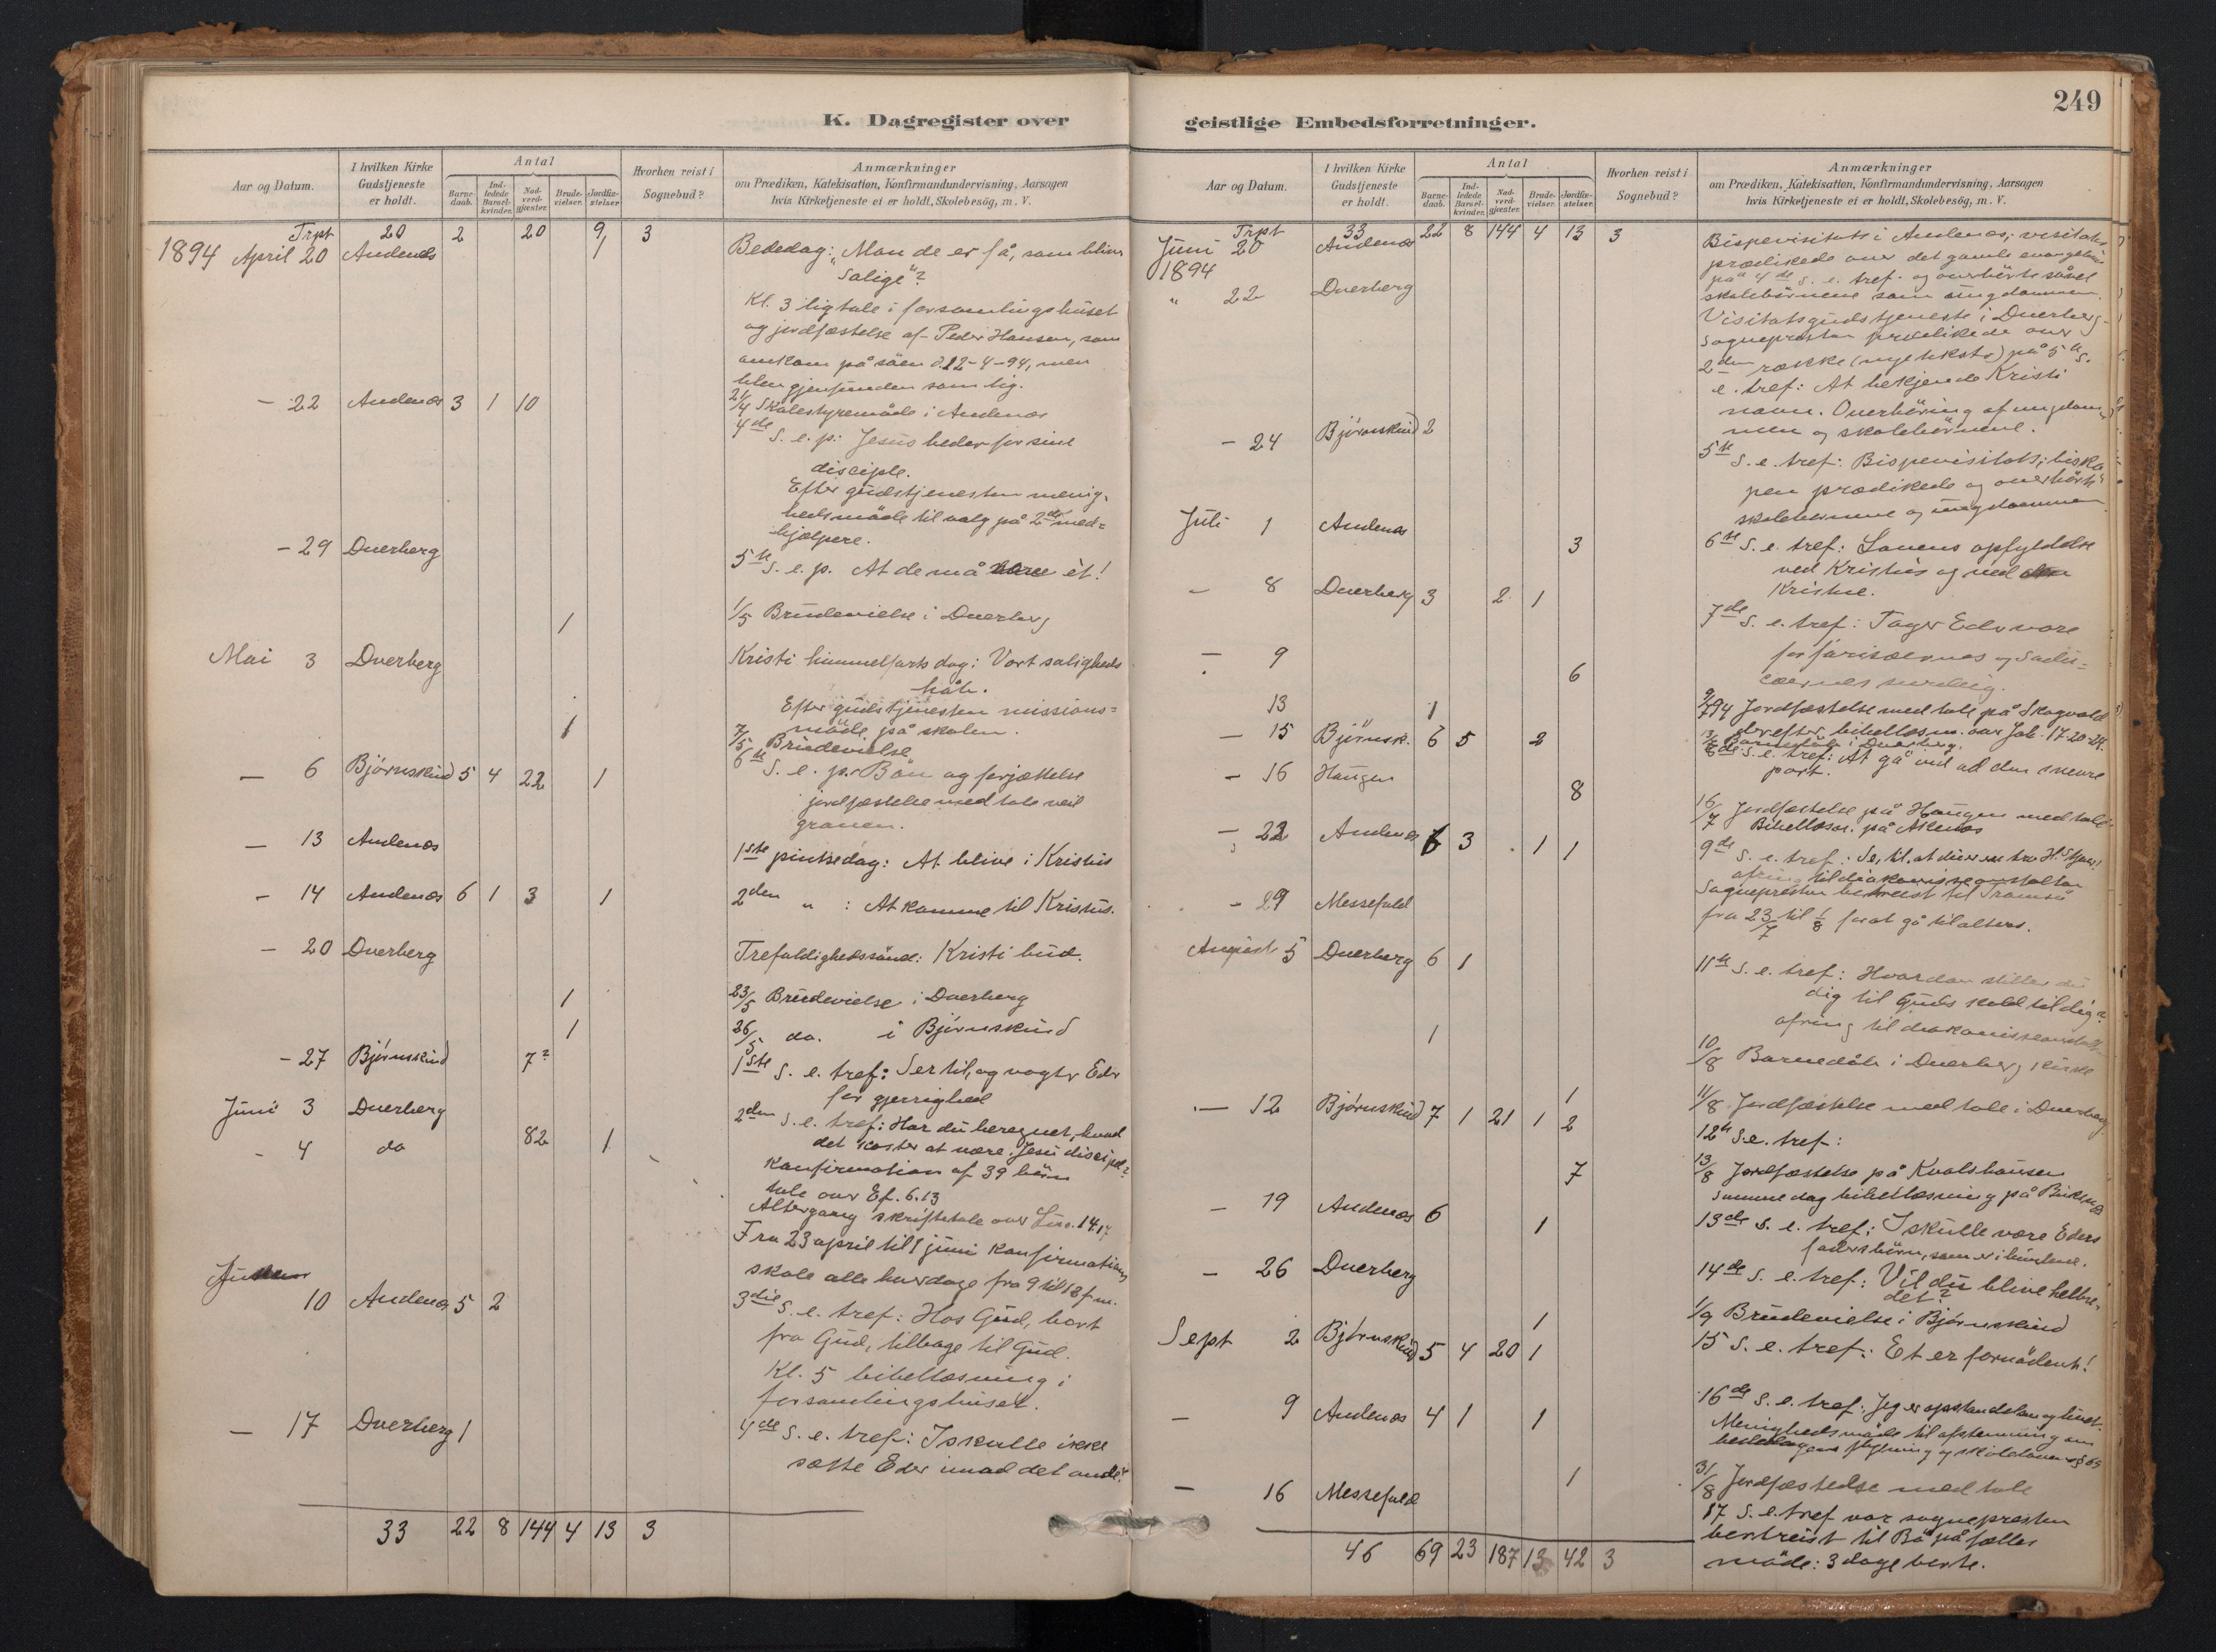 K. Dagregister over
Aar og Datum.
I hvilken Kirke Gudstjeneste er holdt.
Antal
Barne-daab.
Ind-ledede Barsel-kvinder.
Nad-verd-gjæster.
Brude-vielser.
Jordfæ-stelser
Hvorhen reist i Sognebud?
Anmærkninger
om Prædiken, Katekisation, Konfirmandundervisning, Aarsagen
hvis Kirketjeneste ei er holdt, Skolebesög, m. V.
Trpt 20 2 20 9 3
1894 April 20 Andenes 1 Bededag: "Mon de er få, som blive
salige"?
Kl. 3 ligtale i forsamlingshuset
og jordfæstelse af Peder Hansen, som
omkom på söen d. 12-4-94, men
blev gjenfunden som lig.
21/4 Skolestyremöde i Andenæs
- 22 Andenæs 3 1 10 4de S. e. p: Jesus beder for sine
disciple.
Efter gudstjenesten menig-
hedsmöde til valg på 2de med=
hjælpere.
- 29 Dverberg 5te S. e. p. At de må være ét!
1 1/5 Brudevielse i Dverberg
Mai 3 Dverberg Kristi himmelfarts dag: Vort saligheds
håb.
Efter gudstjenesten missions=
möde på skolen.
1 7/5 Brudevielse
- 6 Björnskind 5 4 22 1 6te S. e. p: Bön og forjættelse
jordfæstelse med tale ved
graven.
- 13 Andenæs 1ste pintsedag: At blive i Kristus
- 14 Andenæs 6 1 3 1 2den " : At komme til Kristus.
- 20 Dverberg Trefoldighedssönd: Kristi bud.
1 23/5 Brudevielse i Dverberg
1 26/5 do. i Björnskind
- 27 Björnskind 7? 1ste S. e. tref: Ser til, og vogter Eder
for gjerrighed
Juni 3 Dverberg 2den S. e. tref: Har du beregnet, hvad
det koster at være Jesu discipel?
- 4 do 82 1 Konfirmation af 39 börn
tale over Ef. 6.13
Altergang skriftetale over Luc. 14.17
Fra 23 april til 1 juni konfirmations
skole alle hverdage fra 9 til 12 f.m.
10 Andenæs 5 2 3die S. e. tref: Hos Gud, bort
fra Gud, tilbage til Gud.
Kl. 5 bibellæsning i
forsamlingshuset.
- 17 Dverberg 1 4de S. e. tref: I skulle ikke
sætte Eder imod det onde!
33 22 8 144 4 13 3
249
geistlige Embedsforretninger.
Aar og Datum.
I hvilken Kirke Gudstjeneste er holdt.
Antal
Barne-daab.
Ind-ledede Barsel-kvinder.
Nad-verd-gjæster.
Brude-vielser.
Jordfæ-stelser.
Hvorhen reist i Sognebud?
Anmærkninger
om Prædiken, Katekisation, Konfirmandundervisning, Aarsagen
hvis Kirketjeneste ei er holdt, Skolebesög, m. V.
Trpt 33 22 8 144 4 13 3
Juni 20 Andenæs Bispevisitats i Andenæs; visitats
1894
prædikede over det gamle evangelium
på 4de S. e. tref. og overhörte såvel
skolebörnene som ungdommen.
" 22 Dverberg Visitatsgudstjeneste i Dverberg
Sognepresten prædikede over
2den række (nye tekster) på 5te S.
e. tref: At bekjende Kristi
navn. Overhöring af ungdom-
men og skolebörnene.
- 24 Björnskind 2 5te S. e. tref: Bispevisitats; bisko-
pen prædikede og overhörte
skolebörnene og ungdommen
Juli 1 Andenæs 3 6te S. e. tref: Lovens opfyldelse
ved Kristus og ved
Kristne.
- 8 Dverberg 3 2 1 7de S. e. tref: Tager Eder vare
for farisæernes og Sadu-
cæernes surdeig.
- 9 6 9/7 94 Jordfæstelse med tale på Skogvold
derefter bibellæsn. over Joh. 17.20-24.
13 1 13/7 Barnedåb i Dverberg.
- 15 Björnsk. 6 5 2 8de S. e. tref: At gå ind ad den snevre
port.
- 16 Haugen 8 16/7 Jordfæstelse på Haugen med tale
Bibellæsn. på Åknes
- 22 Andenæs 6 3 1 1 9de S. e. tref: Se, til, at du er
ofring til diakonisseanstalten
- 29 Messefald Sognepresten bortreist til Tromsö
fra 23/7 til 1/8 for at gå til alters.
August 5 Dverberg 6 1 11te S. e. tref: Hvordan stiller du
dig til Guds kald til dig?
ofring til diakonisseanstalten
1 10/8 Barnedåb i Dverberg kirke
1 11/8 Jordfæstelse med tale i Dverberg
- 12 Björnskind 7 1 21 1 2 12te S. e. tref:
7 13/8 Jordfæstelse på Kvalshausen
samme dag bibellæsning på
- 19 Andenæs 6 1 13de S. e. tref: I skulle være Eders
faders börn, som er i himlene.
- 26 Dverberg 14de S. e. tref: Vil du blive helbre-
det?
1 1/9 Brudevielse i Björnskind
Sept 2 Björnskind 5 4 20 1 15 S. e. tref: Et er fornödent!
- 9 Andenæs 4 1 1 16de S. e. tref: Jeg er opstandelsen og livet.
Menighedsmöde til afstemning om
flytning og skoleloven § 65
1 31/8 Jordfæstelse med tale
- 16 Messefald 17 S. e. tref var sognepresten
bortreist til Bö på fælles
möde: 3 dage borte.
46 69 23 187 13 42 3